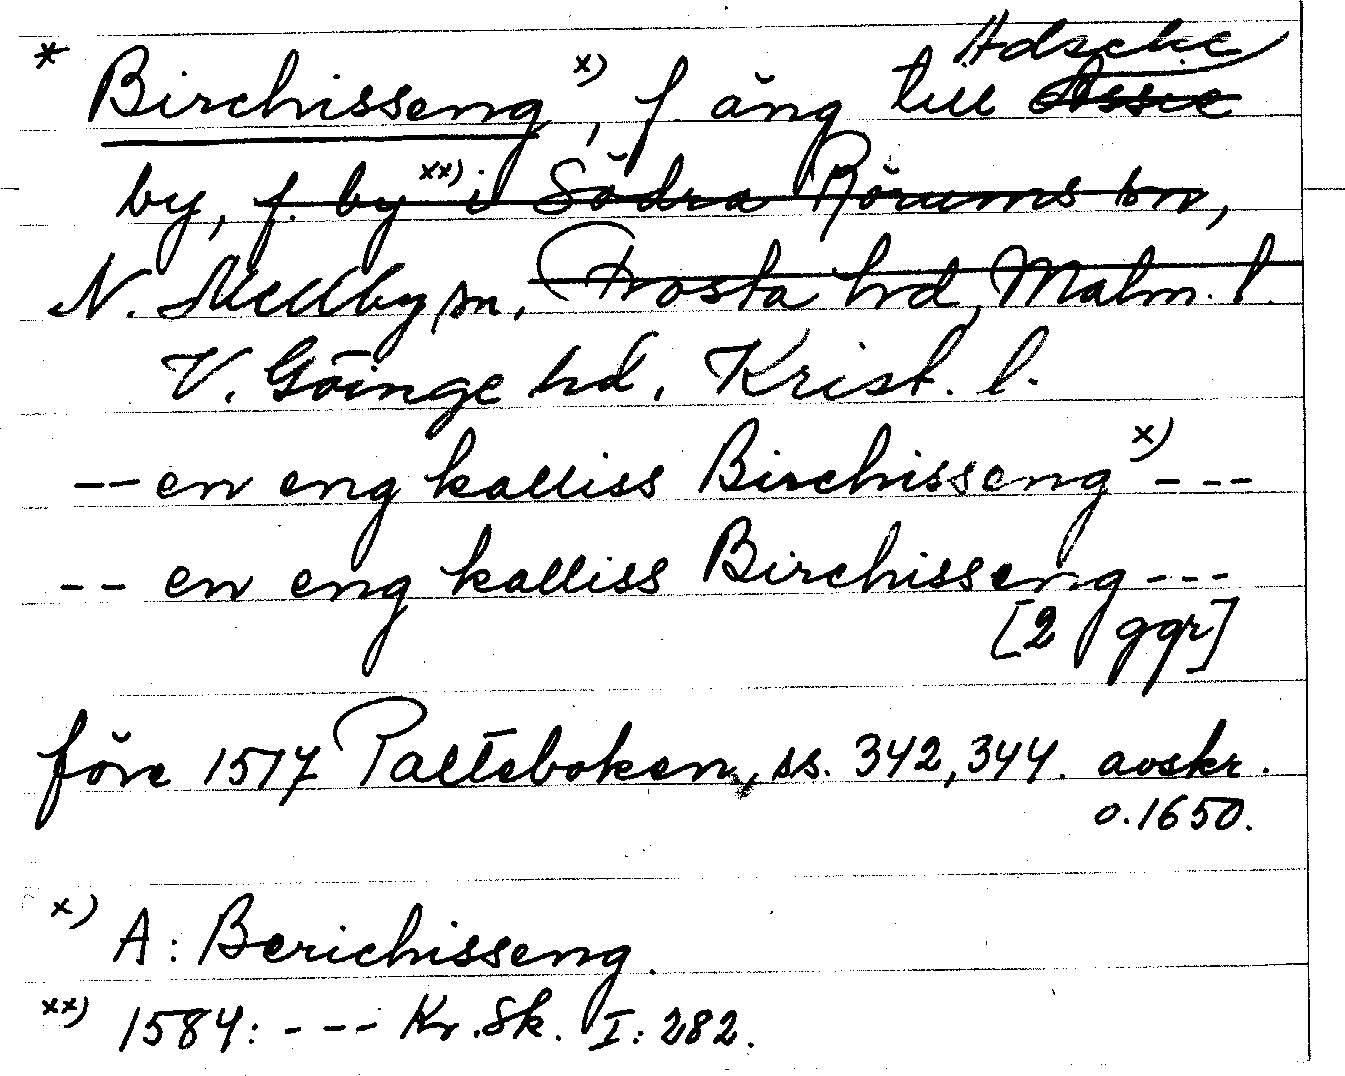 Adseke
* Birchisseng x), f äng till Assie
by, f. by xx) i Södra Rörums sn,
N. Mellby sn, Frosta hd, Malm. l.
V. Göinge hd, Krist. l.
-- en eng kalliss Birchisseng x) ---
-- en eng kalliss Birchisseng ---
[2 ggr]
före 1517 Palteboken, ss. 342, 344. avskr.
o. 1650.
x) A: Berichisseng.
xx) 1584: --- Kr. Sk. I: 282.